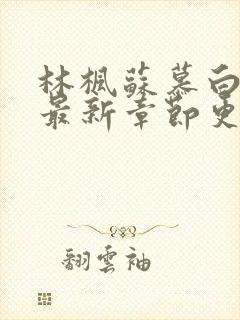 林楓蘇慕白
最新章節更
翻雲袖